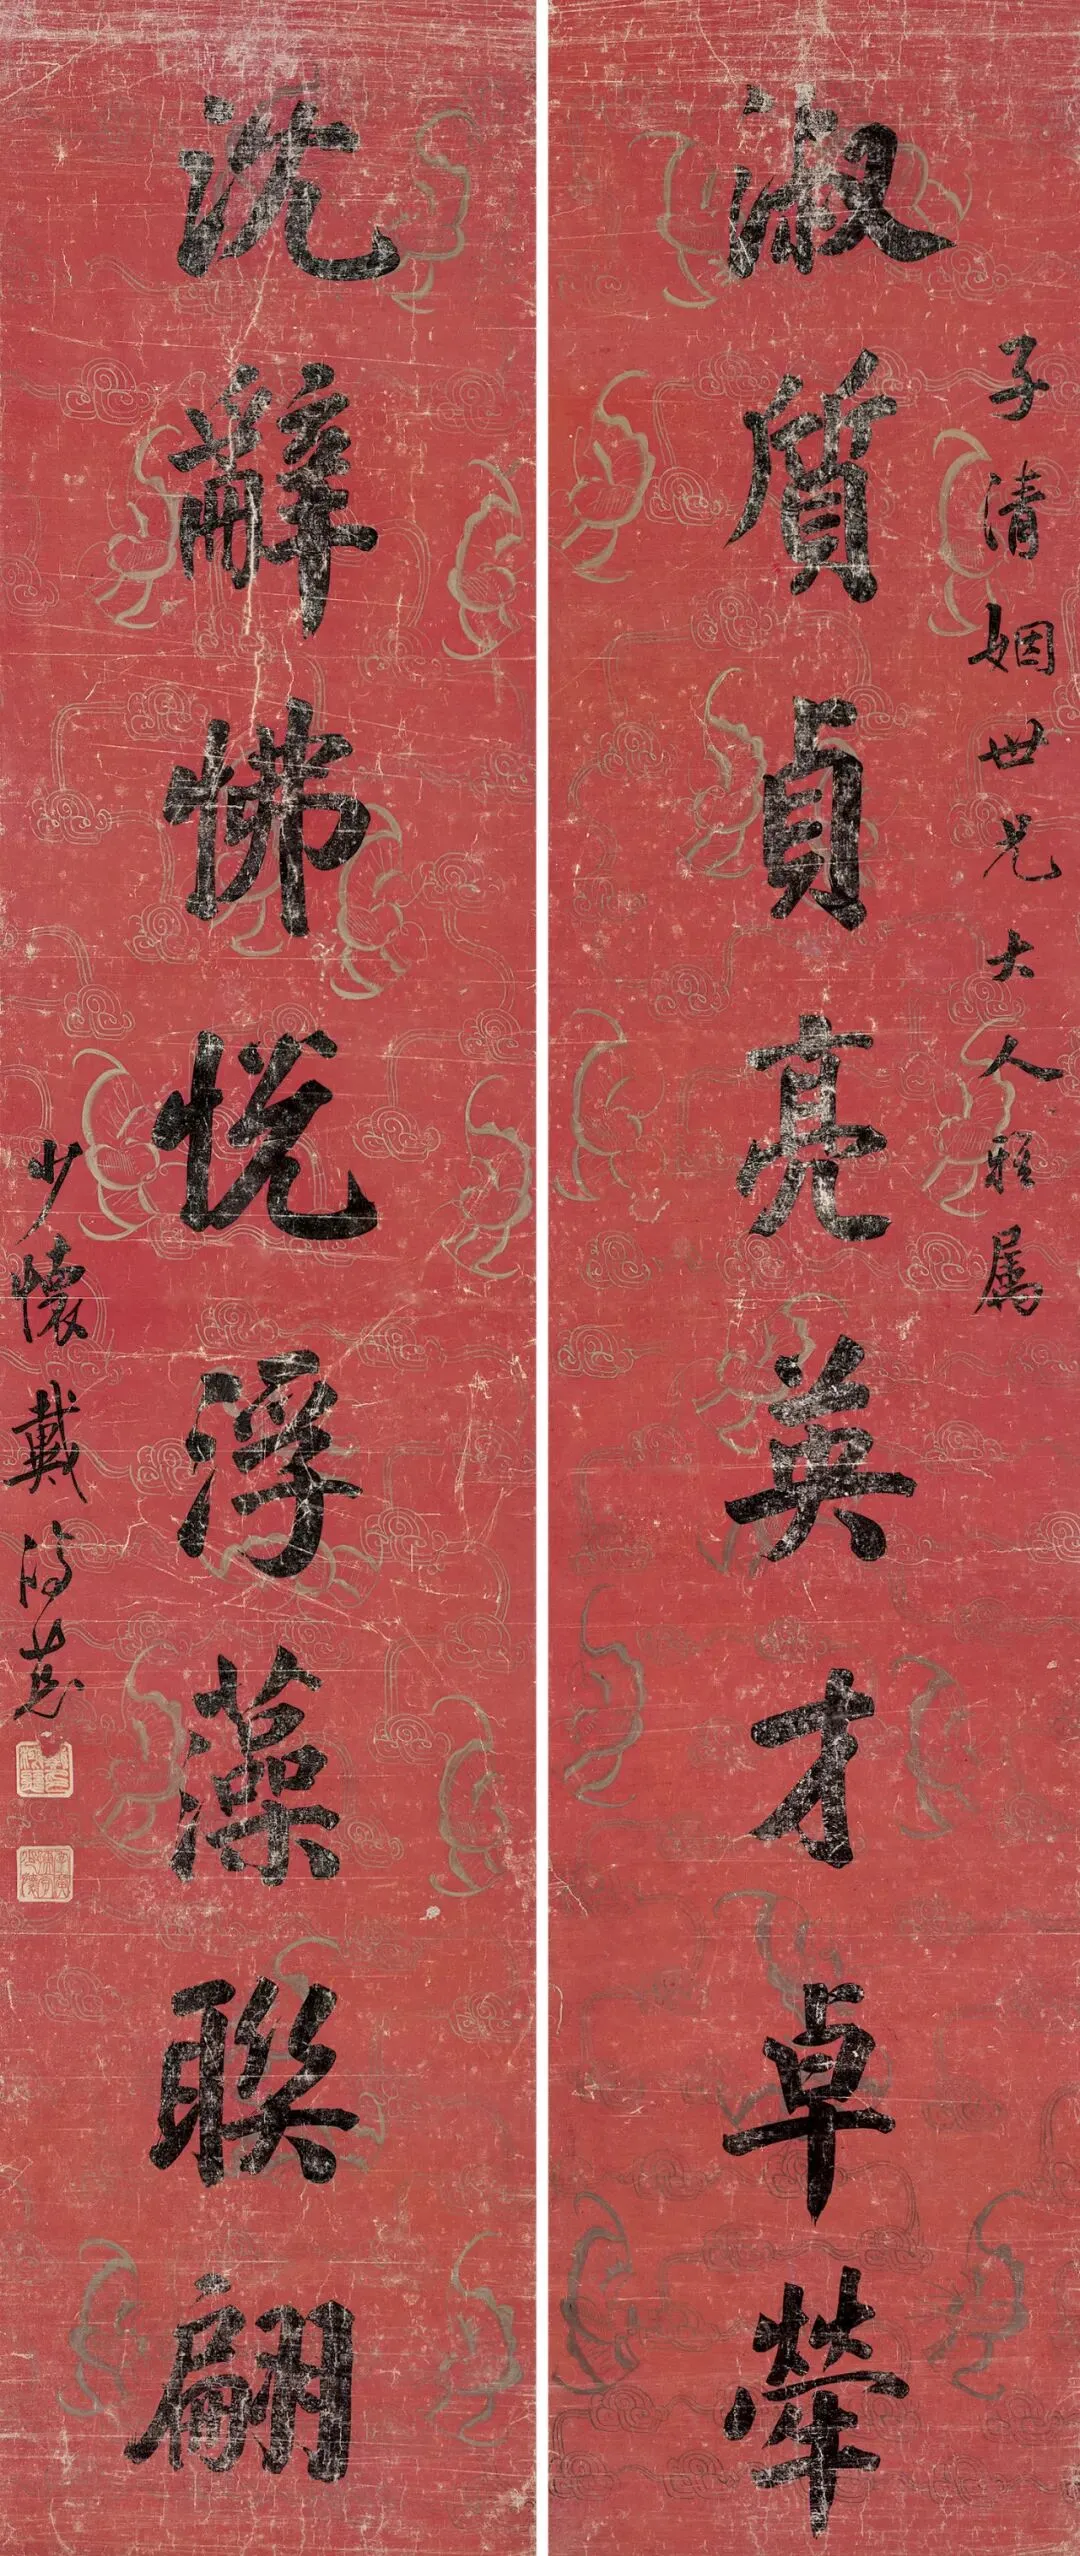 子清姻世兄大人雅属
淑質貞亮英才卓犖
沈辭怫悅浮藻聯翩
少懷戴鴻慈